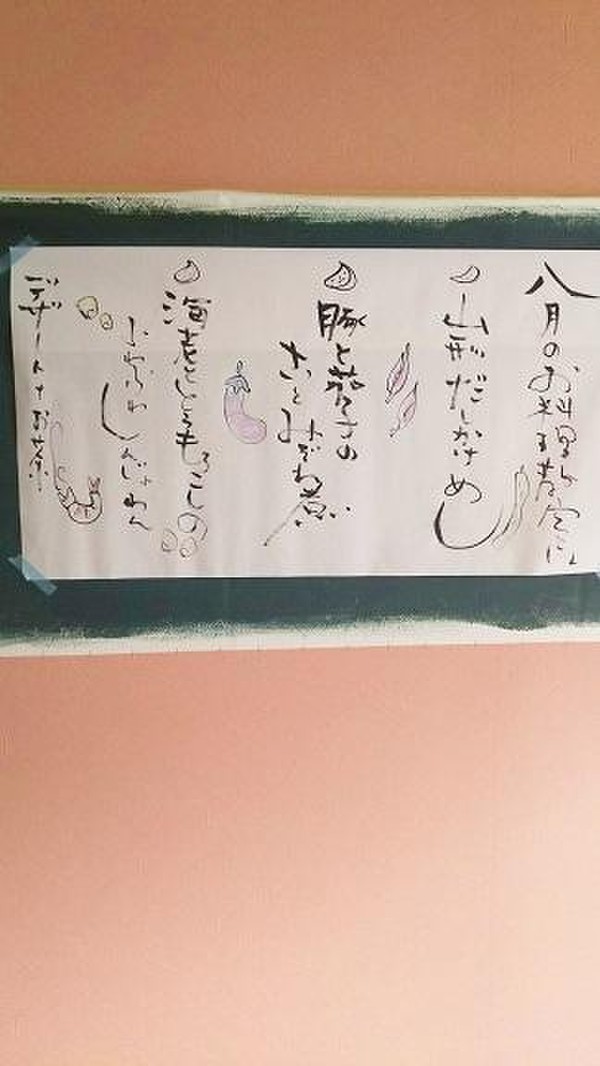 八月のお料理教室
山形だしかけめし
豚と茄子の
さっとみぞれ煮
海老ととうもろこしの
ふわふわしんじょわん
デザート+お茶